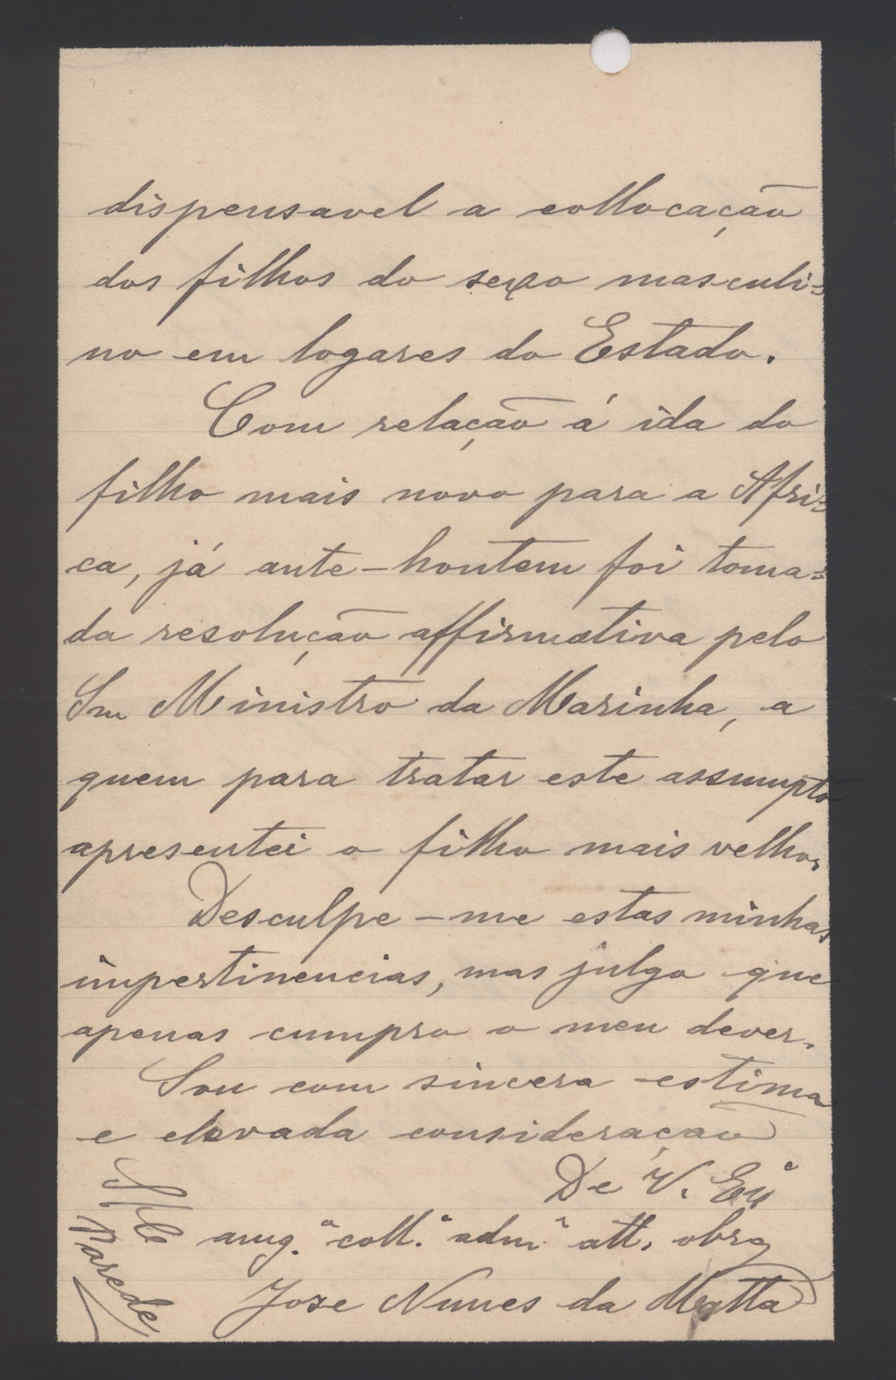 dispensavel a collocação
dos filhos do sexo masculi=
no em logares do Estado.
Com relação á ida do
filho mais novo para a Afri=
ca, já ante-hontem foi toma=
da resolução affirmativa pelo
Snr Ministro da Marinha, a
quem para tratar este assumpto
apresentei o filho mais velho.
Desculpe-me estas minhas
impertinencias, mas julgo que
apenas cumpro o meu dever.
Sou com sincera estima
e elevada consideração
De V. Exª
amg.º coll.ª adm.º att. obrg
Jose Nunes da Matta
S/C
Parede